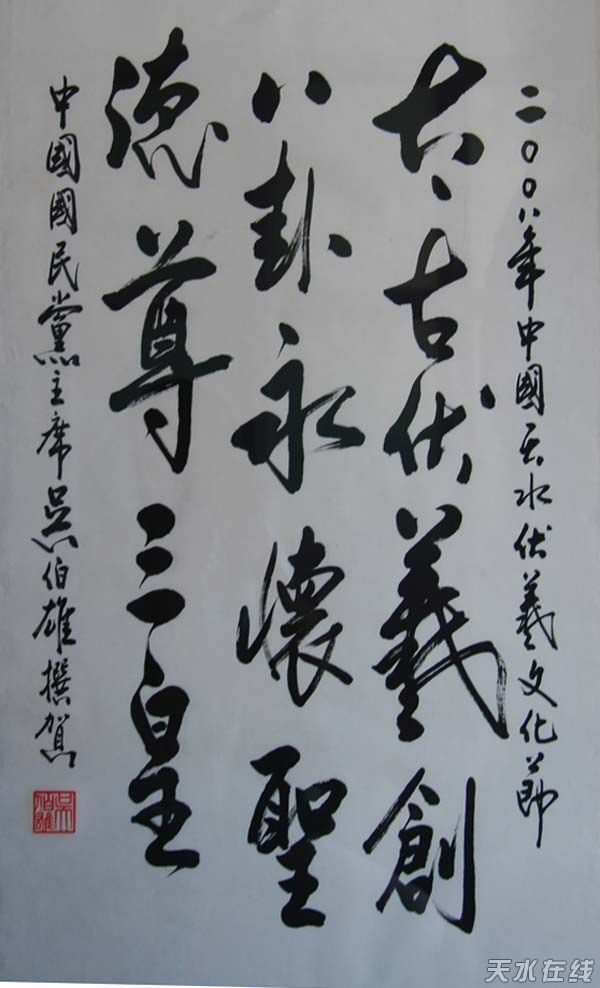 二〇〇八年中國天水伏羲文化節
太古伏羲創
八卦永懷聖
德尊三皇
中國國民黨主席吳伯雄撰賀
吳伯雄
天水在线